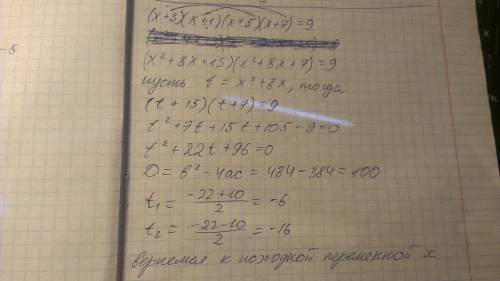 (x+3)(x+1)(x+5)(x+7)=9
(x²+8x+15)(x²+8x+7)=9
пусть t = x²+8x, тогда
(t+15)(t+7)=9
t²+7t+15t+105-9=0
t²+22t+96=0
D = b²-4ac = 484-384=100
t₁ = (-22+10)/2 = -6
t₂ = (-22-10)/2 = -16
вернемся к исходной переменной x
-8